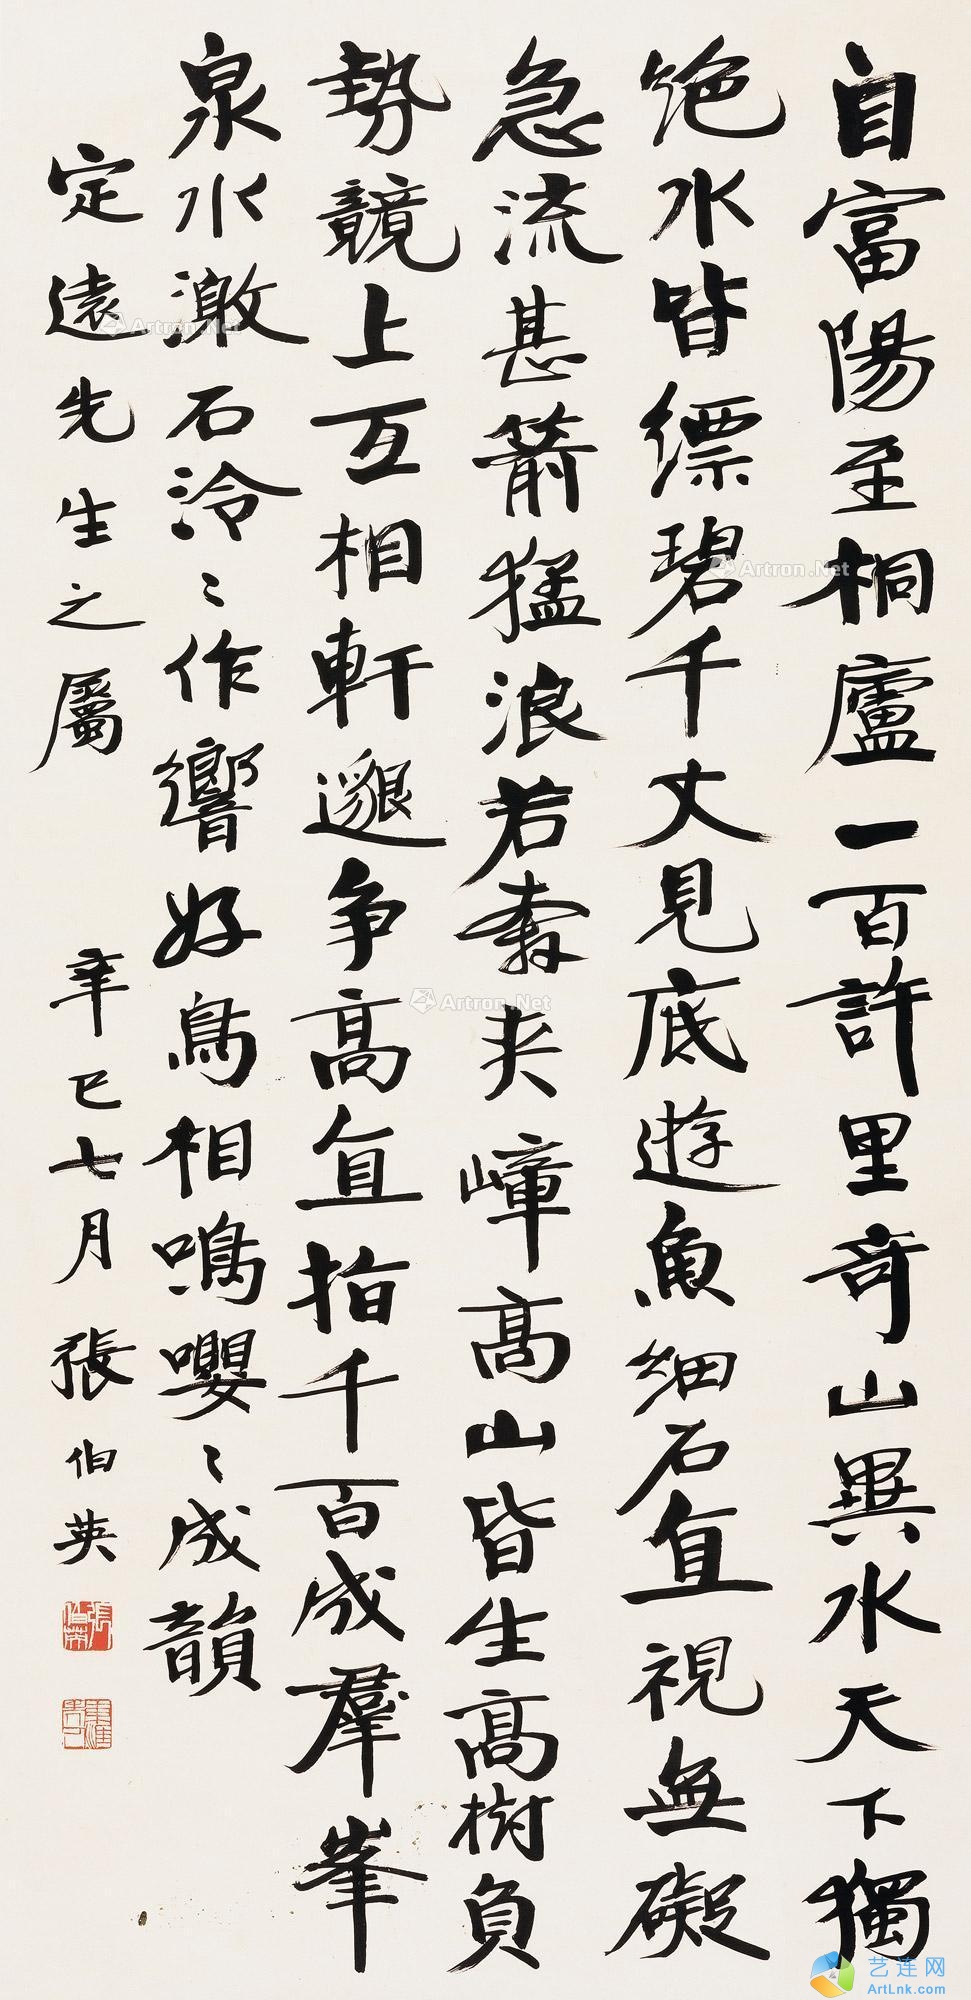 自富陽至桐廬一百許里奇山異水天下獨
絶水皆縹碧千丈見底遊魚細石直視無礙
急流甚箭猛浪若奔夾嶂高山皆生高樹負
勢競上互相軒邈争高直指千百成羣峯
泉水激石泠〻作響好鳥相鳴嚶〻成韻
定遠先生之屬 辛巳七月張伯英
張伯英
Artron.Net
Artron.Net
Artron.Net
艺连网
ArtLnk.com